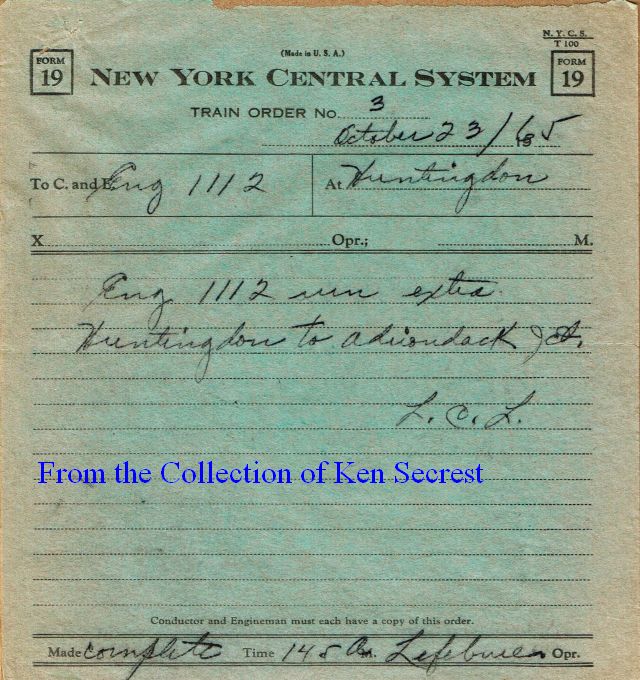 N. Y. C. S.
T 100
(Made in U. S. A.)
FORM 19
NEW YORK CENTRAL SYSTEM
FORM 19
TRAIN ORDER No. 3
October 23/65
To C. and E. Eng 1112
At Huntingdon
X Opr.; M.
Eng 1112 run extra
Huntingdon to Adirondack Jct.
L. C. L.
From the Collection of Ken Secrest
Conductor and Engineman must each have a copy of this order.
Made complete Time 145 A M. Opr.